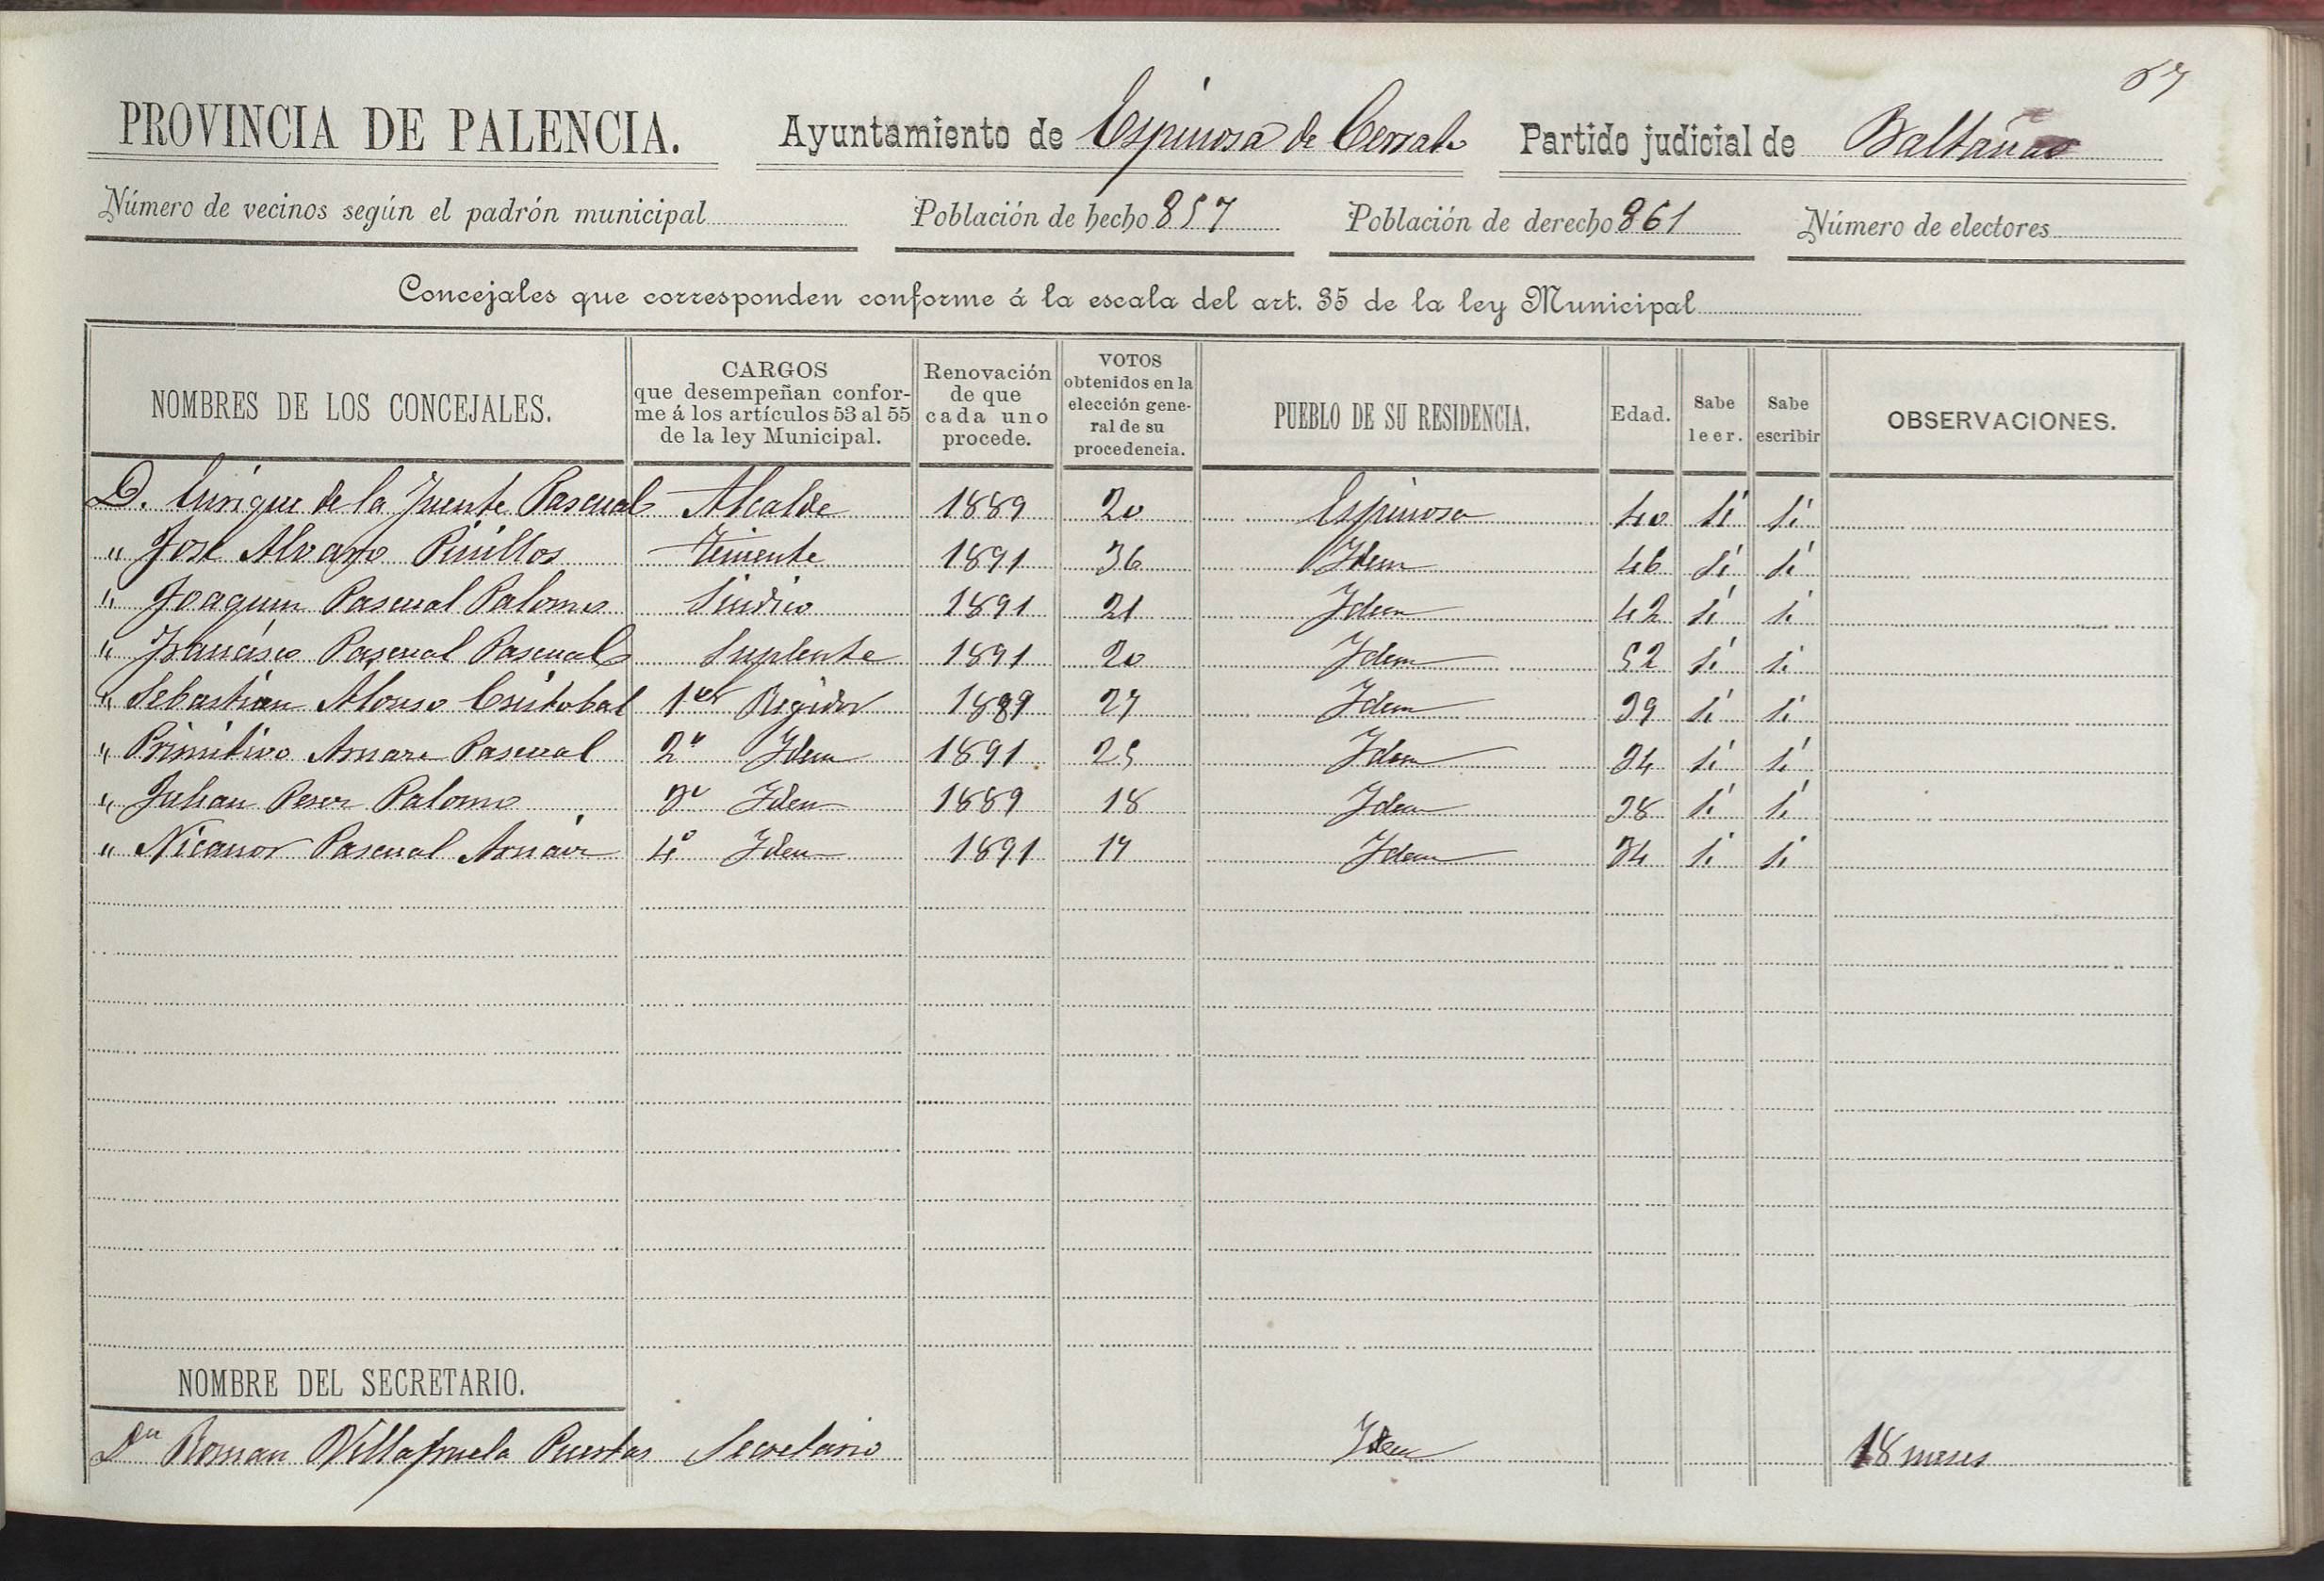 67
PROVINCIA DE PALENCIA. Ayuntamiento de Espinosa de Cerrato Partido judicial de Baltanas
Número de vecinos según el padrón municipal Población de hecho 857 Población de derecho 861 Número de electores
Concejales que corresponden conforme á la escala del art. 35 de la ley Municipal
NOMBRES DE LOS CONCEJALES.
CARGOS
que desempeñan confor-
me á los artículos 53 al 55
de la ley Municipal.
Renovación
de que
cada uno
procede.
VOTOS
obtenidos en la
elección gene-
ral de su
procedencia.
PUEBLO DE SU RESIDENCIA.
Edad.
Sabe
leer.
Sabe
escribir
OBSERVACIONES.
D. Enrique de la Fuente Pascual Alcalde 1889 20 Espinosa 40 sí sí
" José Alvaro Pinillos Teniente 1891 36 Idem 46 sí sí
" Joaquin Pascual Palomo Sindico 1891 21 Idem 42 sí sí
" Francisco Pascual Pascual Suplente 1891 20 Idem 52 sí si
" Sebastián Alonso Cristobal 1er Regidor 1889 27 Idem 39 sí sí
" Primitivo Arnaiz Pascual 2º Idem 1891 25 Idem 34 sí sí
" Julian Palomo 3º Idem 1889 18 Idem 38 sí sí
" Nicanor Pascual Arnáiz 4º Idem 1891 17 Idem 34 sí sí
NOMBRE DEL SECRETARIO.
Dn Roman Villafruela Puertas Secretario Idem 18 meses